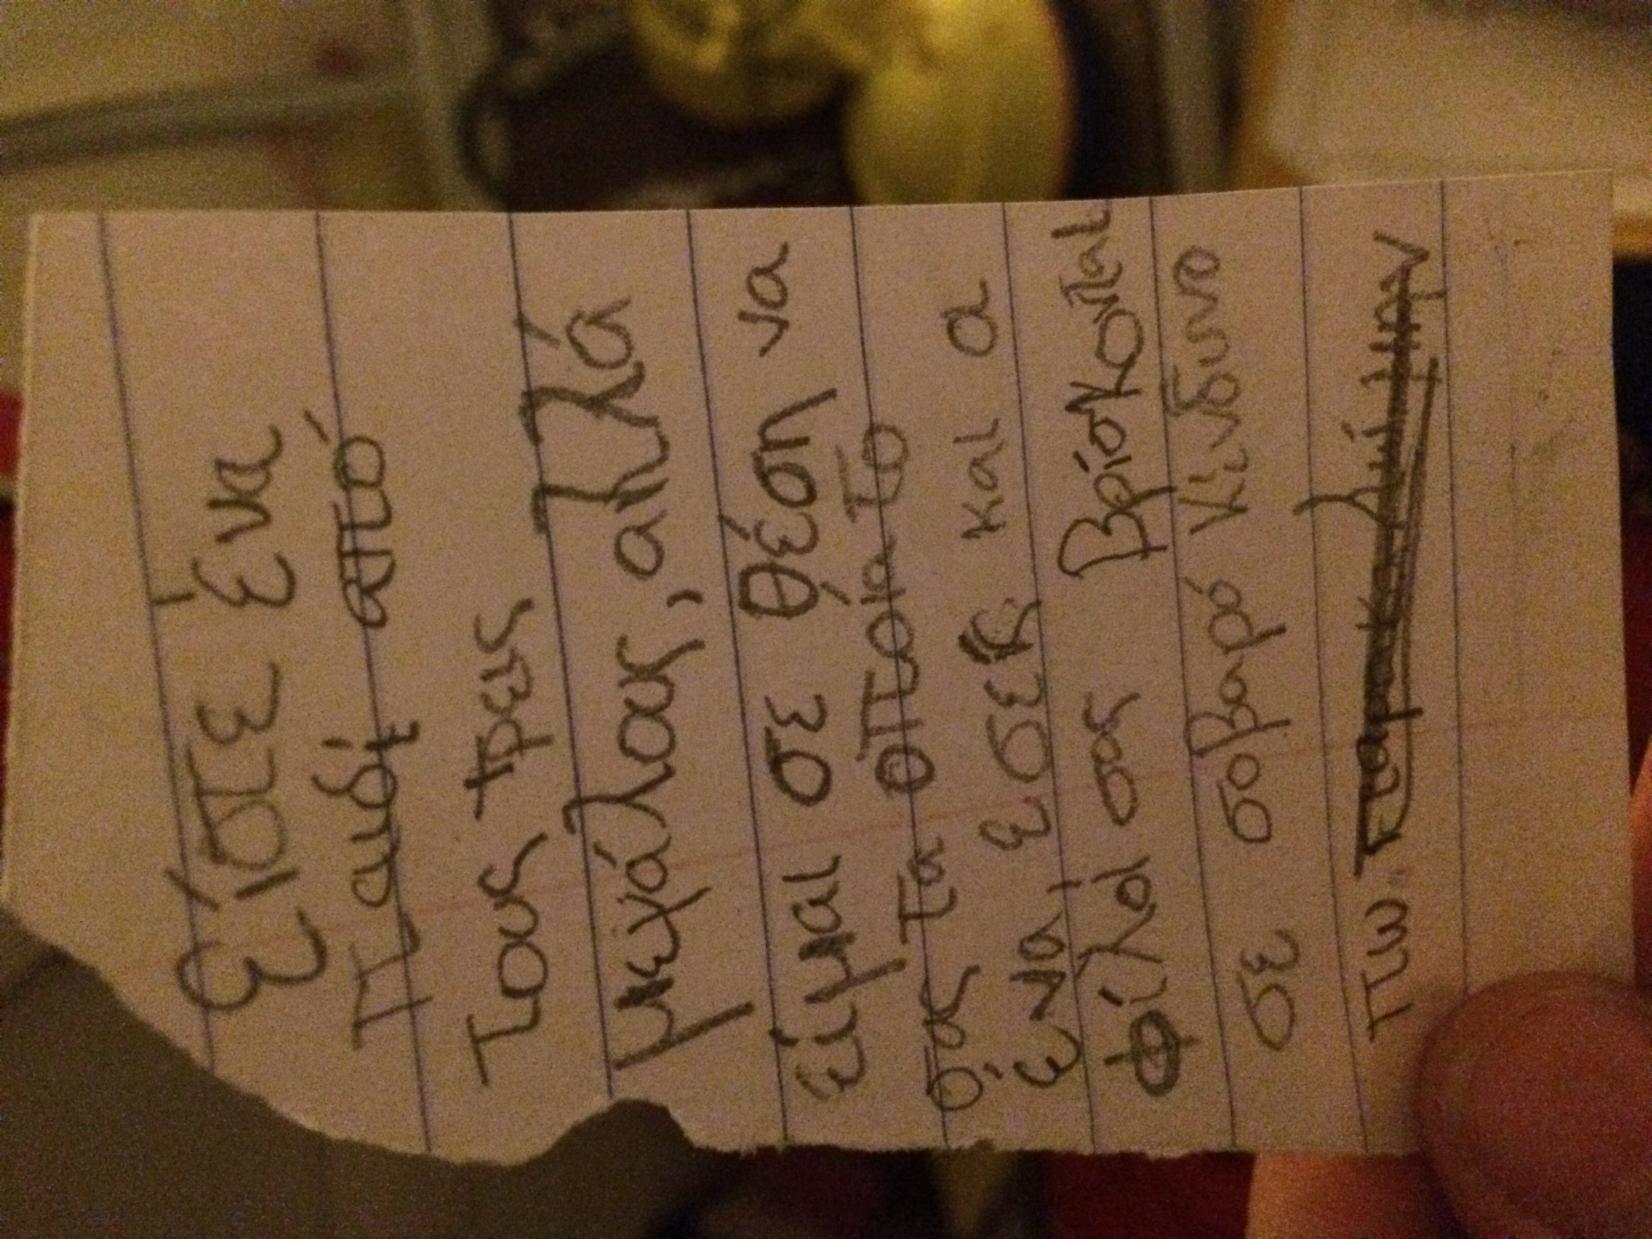 Είστε ένα
παιδί από
τους τρεις
μεγάλους, αλλά
είμαι σε θέση να
σας τα οποία το
ένα, εσείς και α
φίλοί σας βρίσκονται
σε σοβαρό κίνδυνο
πω